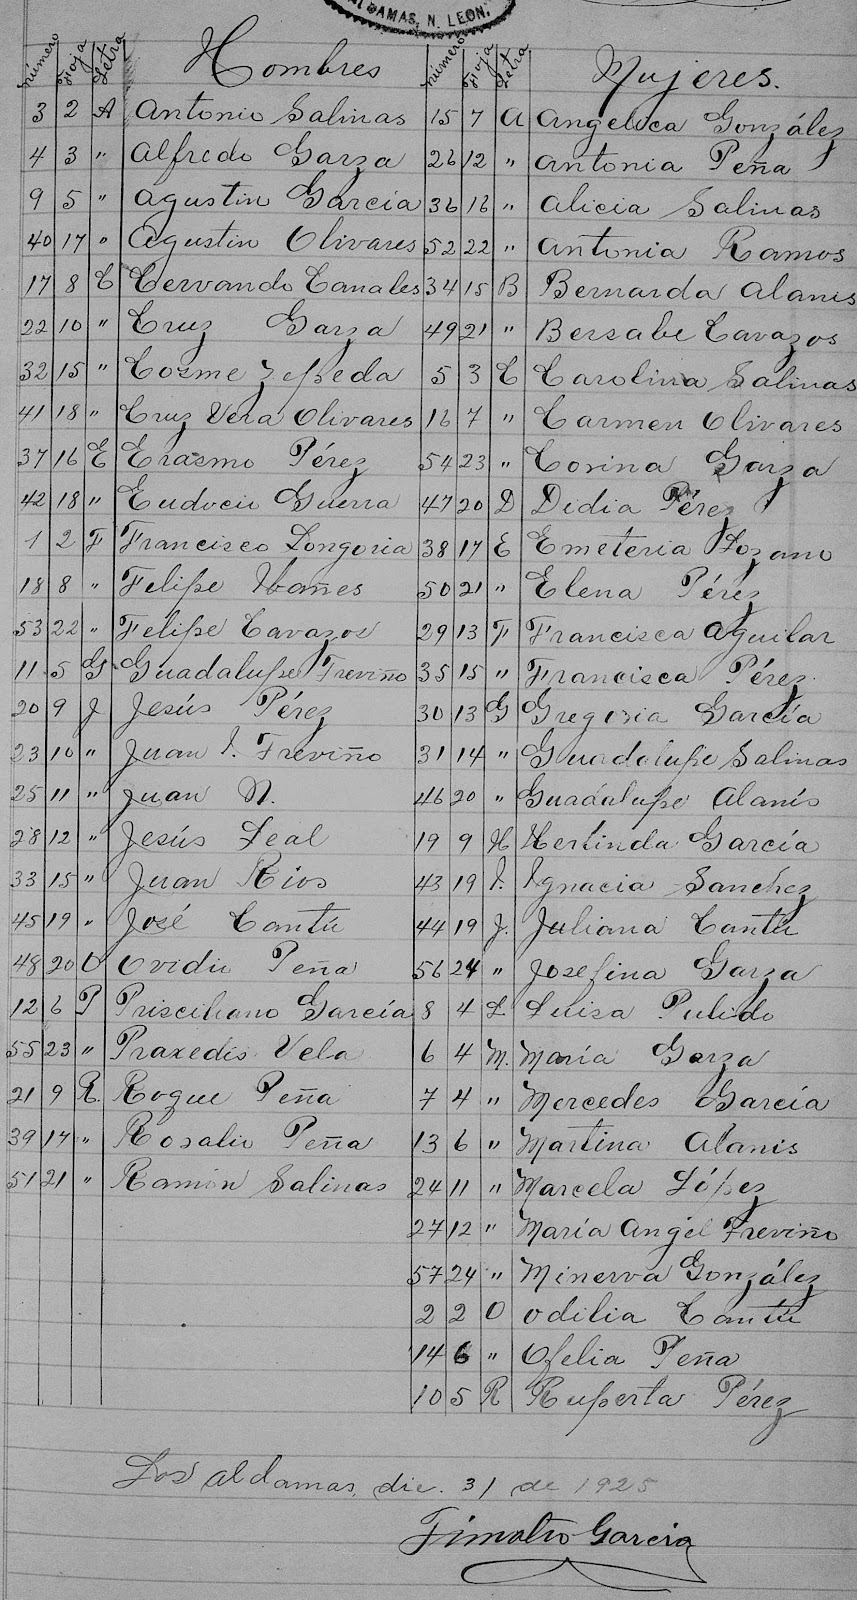 ALDAMAS, N. LEON.
número Foja Letra Hombres número Foja Letra Mujeres.
3 2 A Antonio Salinas 15 7 A Angelica González
4 3 " Alfredo Garza 26 12 " Antonia Peña
9 5 " Agustin García 36 16 " Alicia Salinas
40 17 " Agustin Olivares 52 22 " Antonia Ramos
17 8 C Cervando Canales 34 15 B Bernarda Alanis
22 10 " Cruz Garza 49 21 " Bersabe Cavazos
32 15 " Cosme Zepeda 5 3 C Carolina Salinas
41 18 " Cruz Vera Olivares 16 7 " Carmen Olivares
37 16 E Erasmo Pérez 54 23 " Corina Garza
42 18 " Eudocio Guerra 47 20 D Didia Pérez
1 2 F Francisco Longoria 38 17 E Emeteria Lozano
18 8 " Felipe Ibañes 50 21 " Elena Pérez
53 22 " Felipe Cavazos 29 13 F Francisca Aguilar
11 5 G Guadalupe Treviño 35 15 " Francisca Pérez
20 9 J Jesús Pérez 30 13 G Gregoria García
23 10 " Juan I. Treviño 31 14 " Guadalupe Salinas
25 11 " Juan N. 46 20 " Guadalupe Alanís
28 12 " Jesús Leal 19 9 H Herlinda García
33 15 " Juan Rios 43 19 I. Ignacia Sanchez
45 19 " José Cantú 44 19 J. Juliana Cantú
48 20 O Ovidio Peña 56 24 " Josefina Garza
12 6 P Prisciliano García 8 4 L Luisa Pulido
55 23 " Praxedis Vela 6 4 M. María Garza
21 9 R. Roque Peña 7 4 " Mercedes García
39 17 " Rosalio Peña 13 6 " Martina Alanis
51 21 " Ramón Salinas 24 11 " Marcela López
27 12 " María Angel Treviño
57 24 " Minerva González
2 2 O Odilia Cantú
14 6 " Ofelia Peña
10 5 R Ruperta Pérez
Los Aldamas, dic. 31 de 1925
Timoteo García